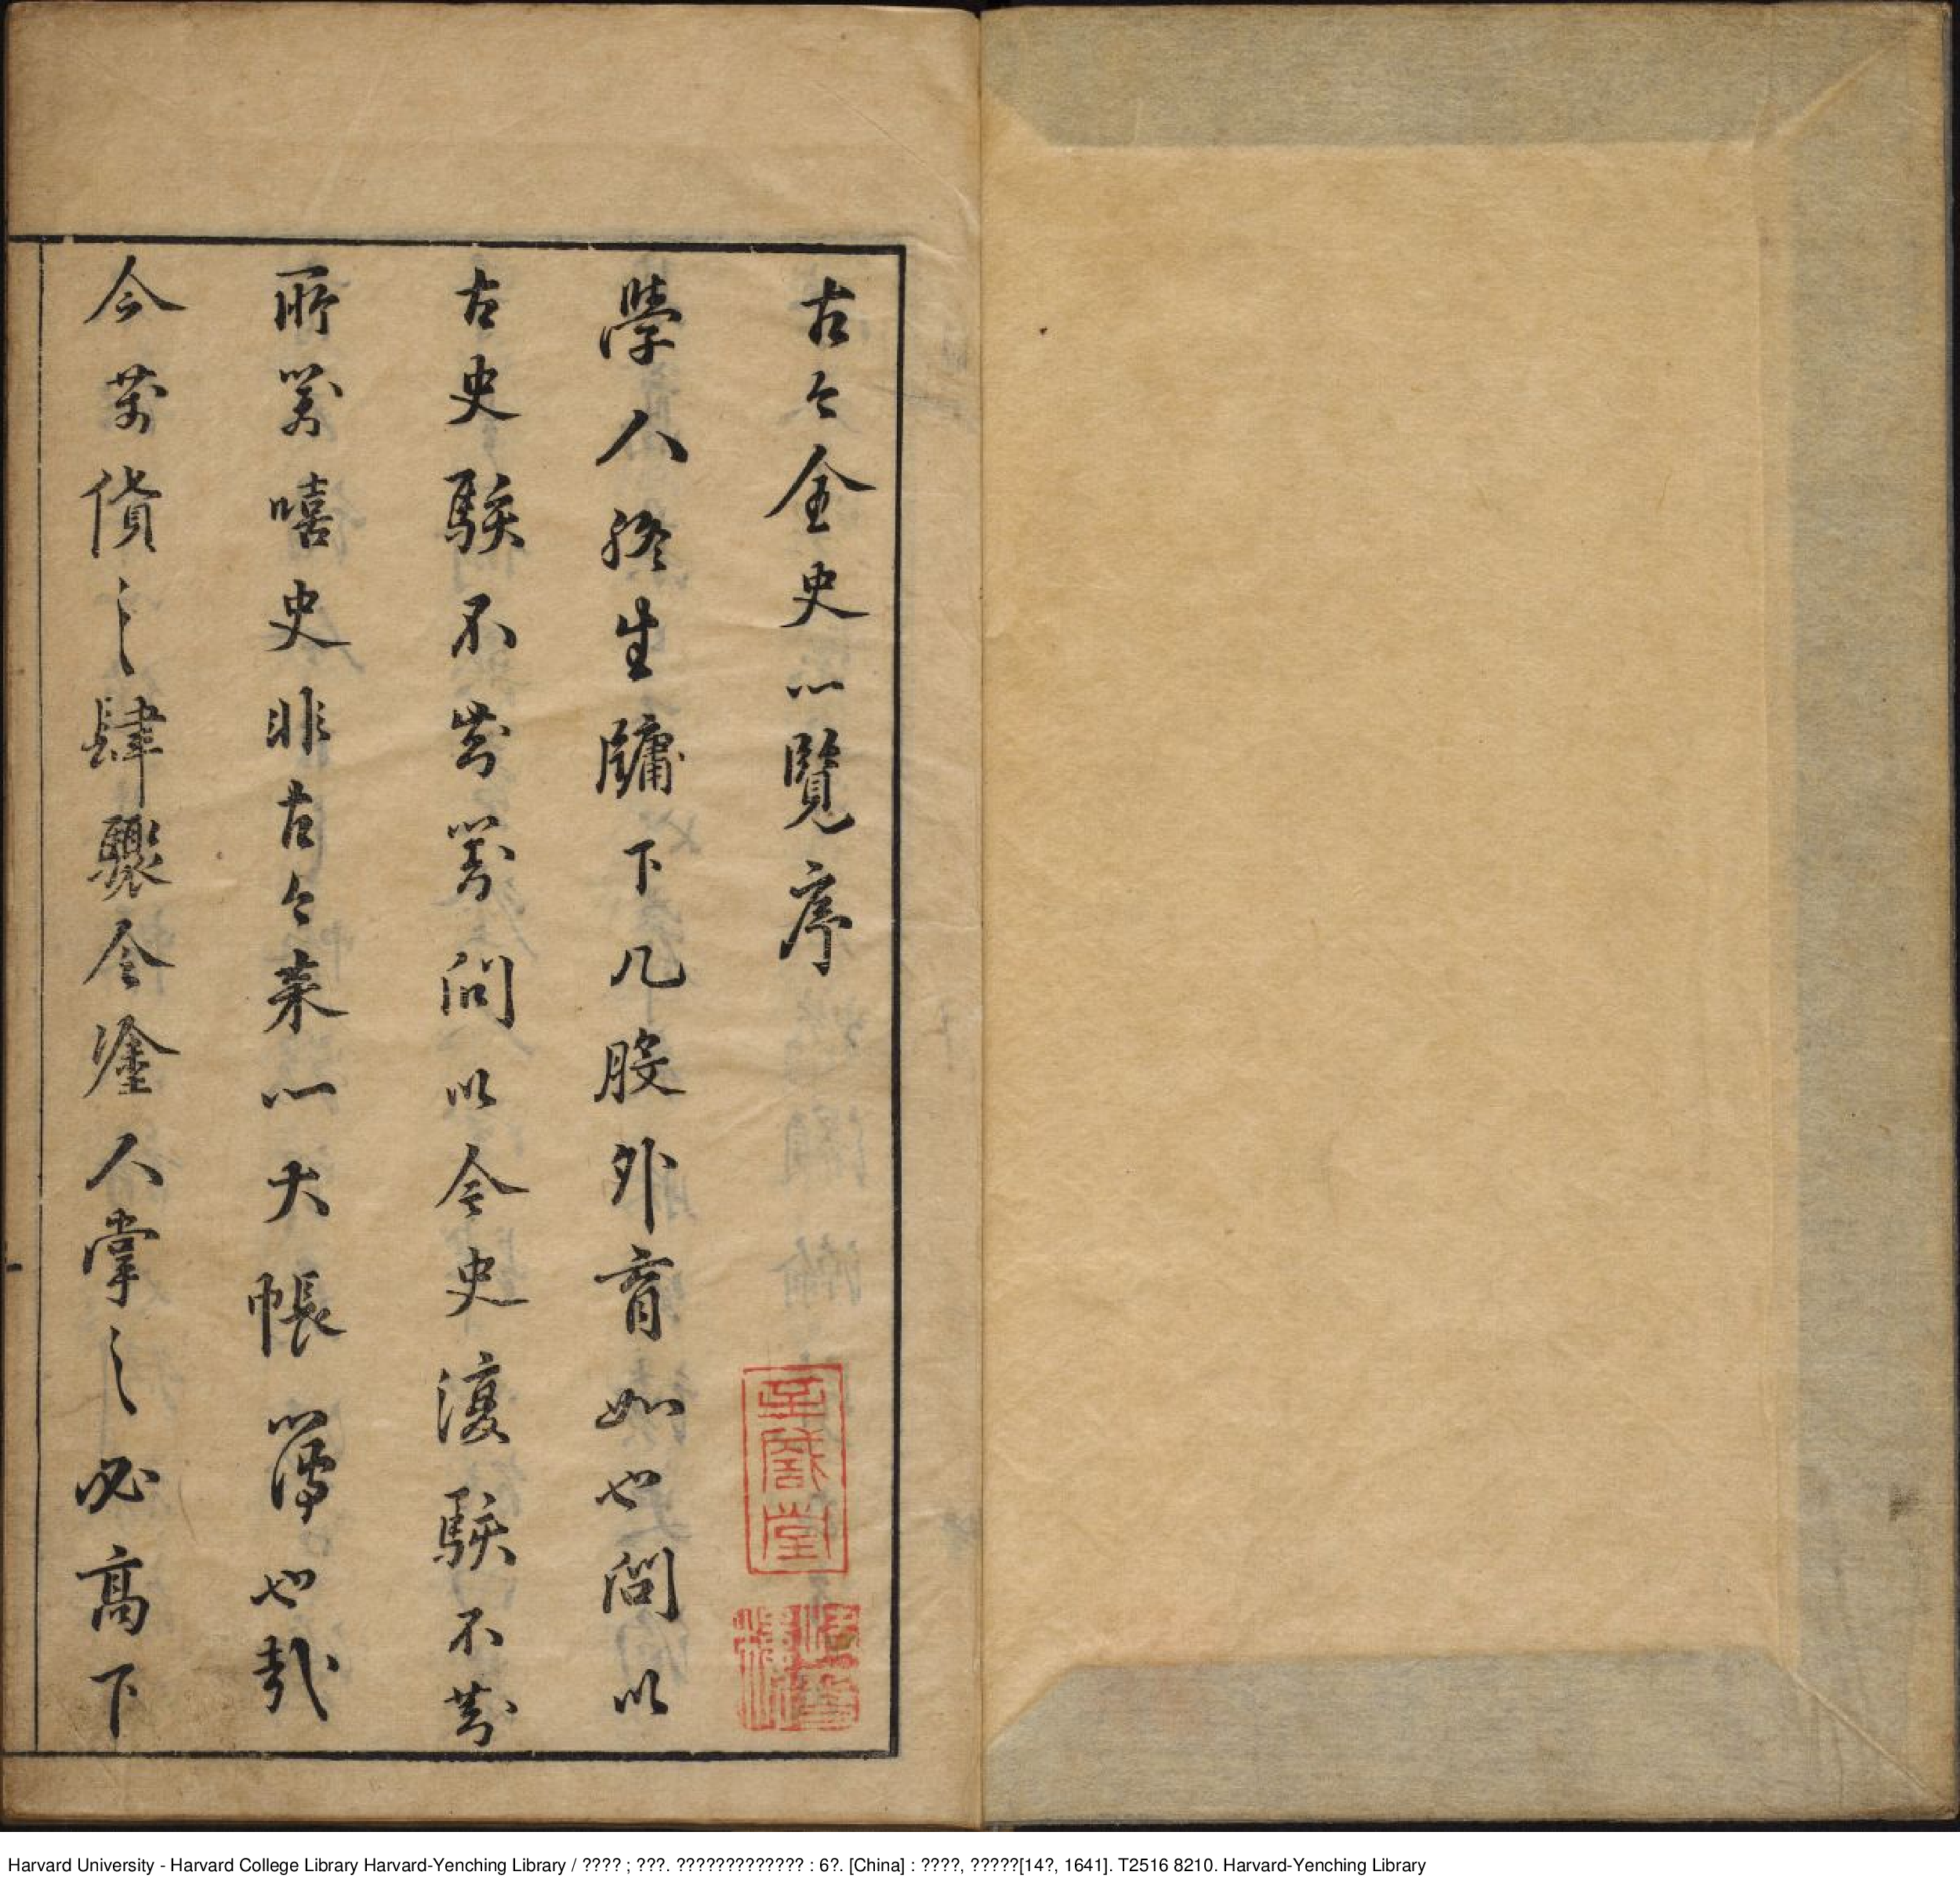 古今全史一覽序
學人終生牖下几股外盲如也問以
古史駭不對問以今史復駭不
所嘻史非古今來一大帳簿也哉
今萬貨之肆驟令塗人掌之必高下
堂
Harvard University - Harvard College Library Harvard-Yenching Library / ???? ; ???. ????????????? : 6?. [China] : ????, ?????[14?, 1641]. T2516 8210. Harvard-Yenching Library